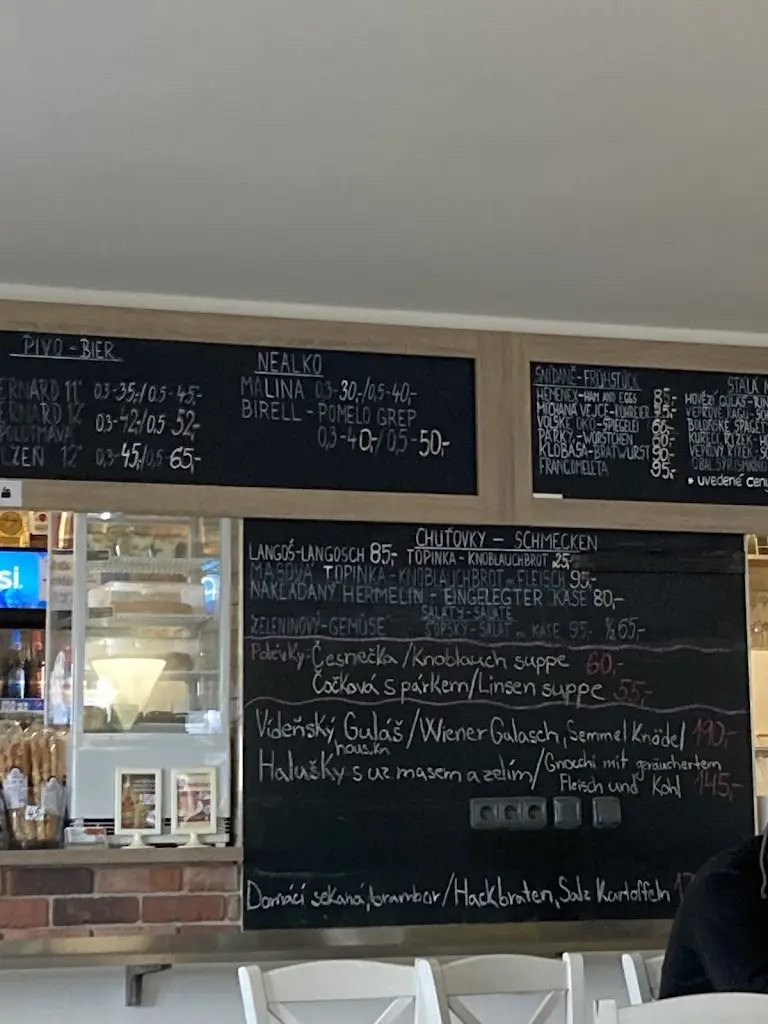 PIVO - BIER
ERNARD 11° 0,3-35,-/0,5-45,-
ERNARD 12° 0,3-42/0,5 52,-
POLOTMAVÁ
LZEŇ 12° 0,3-45/0,5-65,-
NEALKO
MALINA 0,3-30,-/0,5-40,-
BIRELL - POMELO GREP
0,3-40,-/0,5-50,-
SNÍDANĚ-FRÜHSTÜCK
HEMENEX-HAM AND EGGS 85,-
MÍCHANÁ VEJCE
VOLSKÉ OKO-SPIEGELEI
PÁRKY-WÜRSTCHEN
KLOBÁSA-BRATWURST 90,-
FRANC.OMELETA 95,-
STÁLÁ
HOVĚZÍ GULÁŠ
VEPŘOVÉ
SPAGET
KUŘECÍ ŘÍZEK
VEPŘOVÝ ŘÍZEK
* uvedené ceny
si
CHUŤOVKY - SCHMECKEN
LANGOŠ-LANGOSCH 85,- TOPINKA-KNOBLAUCHBROT 25,-
MASOVÁ TOPINKA-KNOBLAUCHBROT m. FLEISCH 95,-
NAKLÁDANÝ HERMELÍN - EINGELEGTER KÄSE 80,-
SALÁTY-SALATE
ZELENINOVÝ-GEMÜSE ŠOPSKÝ-SALAT m. KÄSE 95,- ½ 65,-
Polévky-Česnečka/Knoblauch suppe 60,-
Čočková s párkem/Linsen suppe 55,-
Vídeňský Guláš/Wiener Gulasch, Semmel Knödel 190,-
hous.kn.
Halušky s uz. masem a zelím/Gnocchi mit geräuchertem
Fleisch und Kohl 145,-
Domácí sekaná, brambor/Hackbraten, Salz Kartoffeln